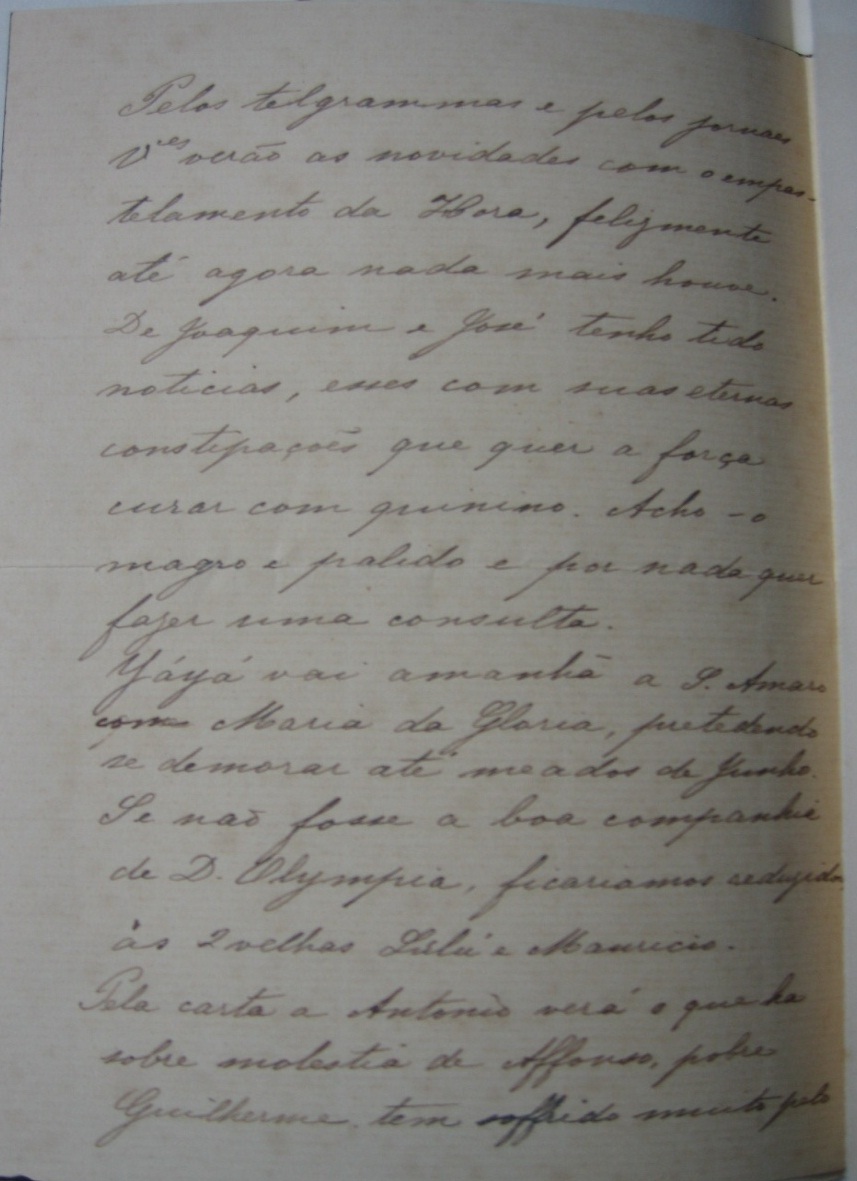 Pelos telgrammas e pelos jornaes
Vces verão as novidades com o empas-
telamento da Hora, felizmente
até agora nada mais houve.
De Joaquim e José tenho tido
noticias, esses com suas eternas
constipações que quer a força
curar com quinino. Acho-o
magro e palido e por nada quer
fazer uma consulta.
Yáyá vai amanhã a S. Amaro
com Maria da Gloria, pretedendo
se demorar até meados de Junho.
Se não fosse a boa companhia
de D. Olympia, ficariamos reduzidos
às 2 velhas Lulú e Mauricio.
Pela carta a Antonio verá o que ha
sobre molestia de Affonso, pobre
Guilherme tem soffrido muito pelo